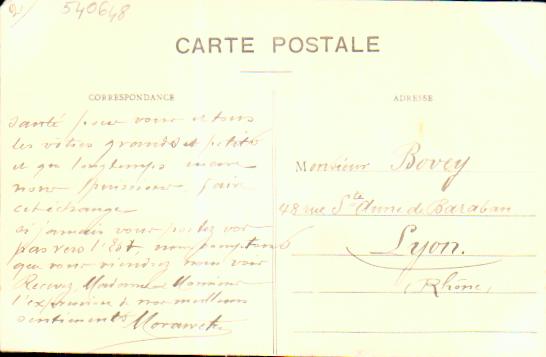 2/ 540648
CARTE POSTALE
CORRESPONDANCE
ADRESSE
santé pour vous et tous
les vôtres grands et petits
et que longtemps encore
nous puissions faire
cet échange
si jamais vous portez vos
pas vers l'Est, nous comptons
que vous viendrez nous voir
Recevez Madame Monsieur
l'expression de nos meilleurs
sentiments
Monsieur Bovey
48 rue Ste Anne de Baraban
Lyon.
(Rhône)